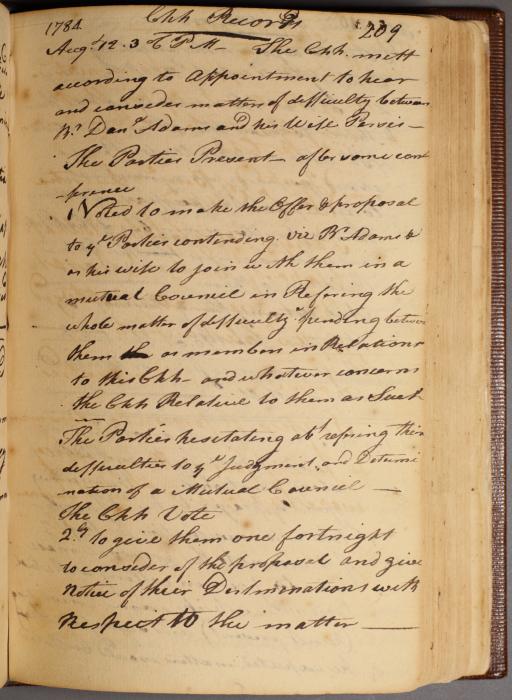 1784. Chh Records 209
Augt. 12. 3 P M— The Chh. mett
according to Appointment to hear
and consider matters of difficulty between
Br. Danl. Adams and his Wife Persis—
The Parties Present— after some con
ference
Voted to make the Offer & proposal
to ye Parties contending. viz Br. Adams &
his wife to join with them in a
mutual Council in Refering the
whole matter of difficulty pending betwe
them as members in Relations
to this Chh— and whatever concerns
the Chh Relative to them as Such
The Parties hesitating abt refering their
difficulties to ye Judgment and Determi
nation of a Mutual Council —
The Chh Vote
2ly to give them one fortnight
to consider of the proposal and give
Notice of their Desterminations with
Respect to the matter —